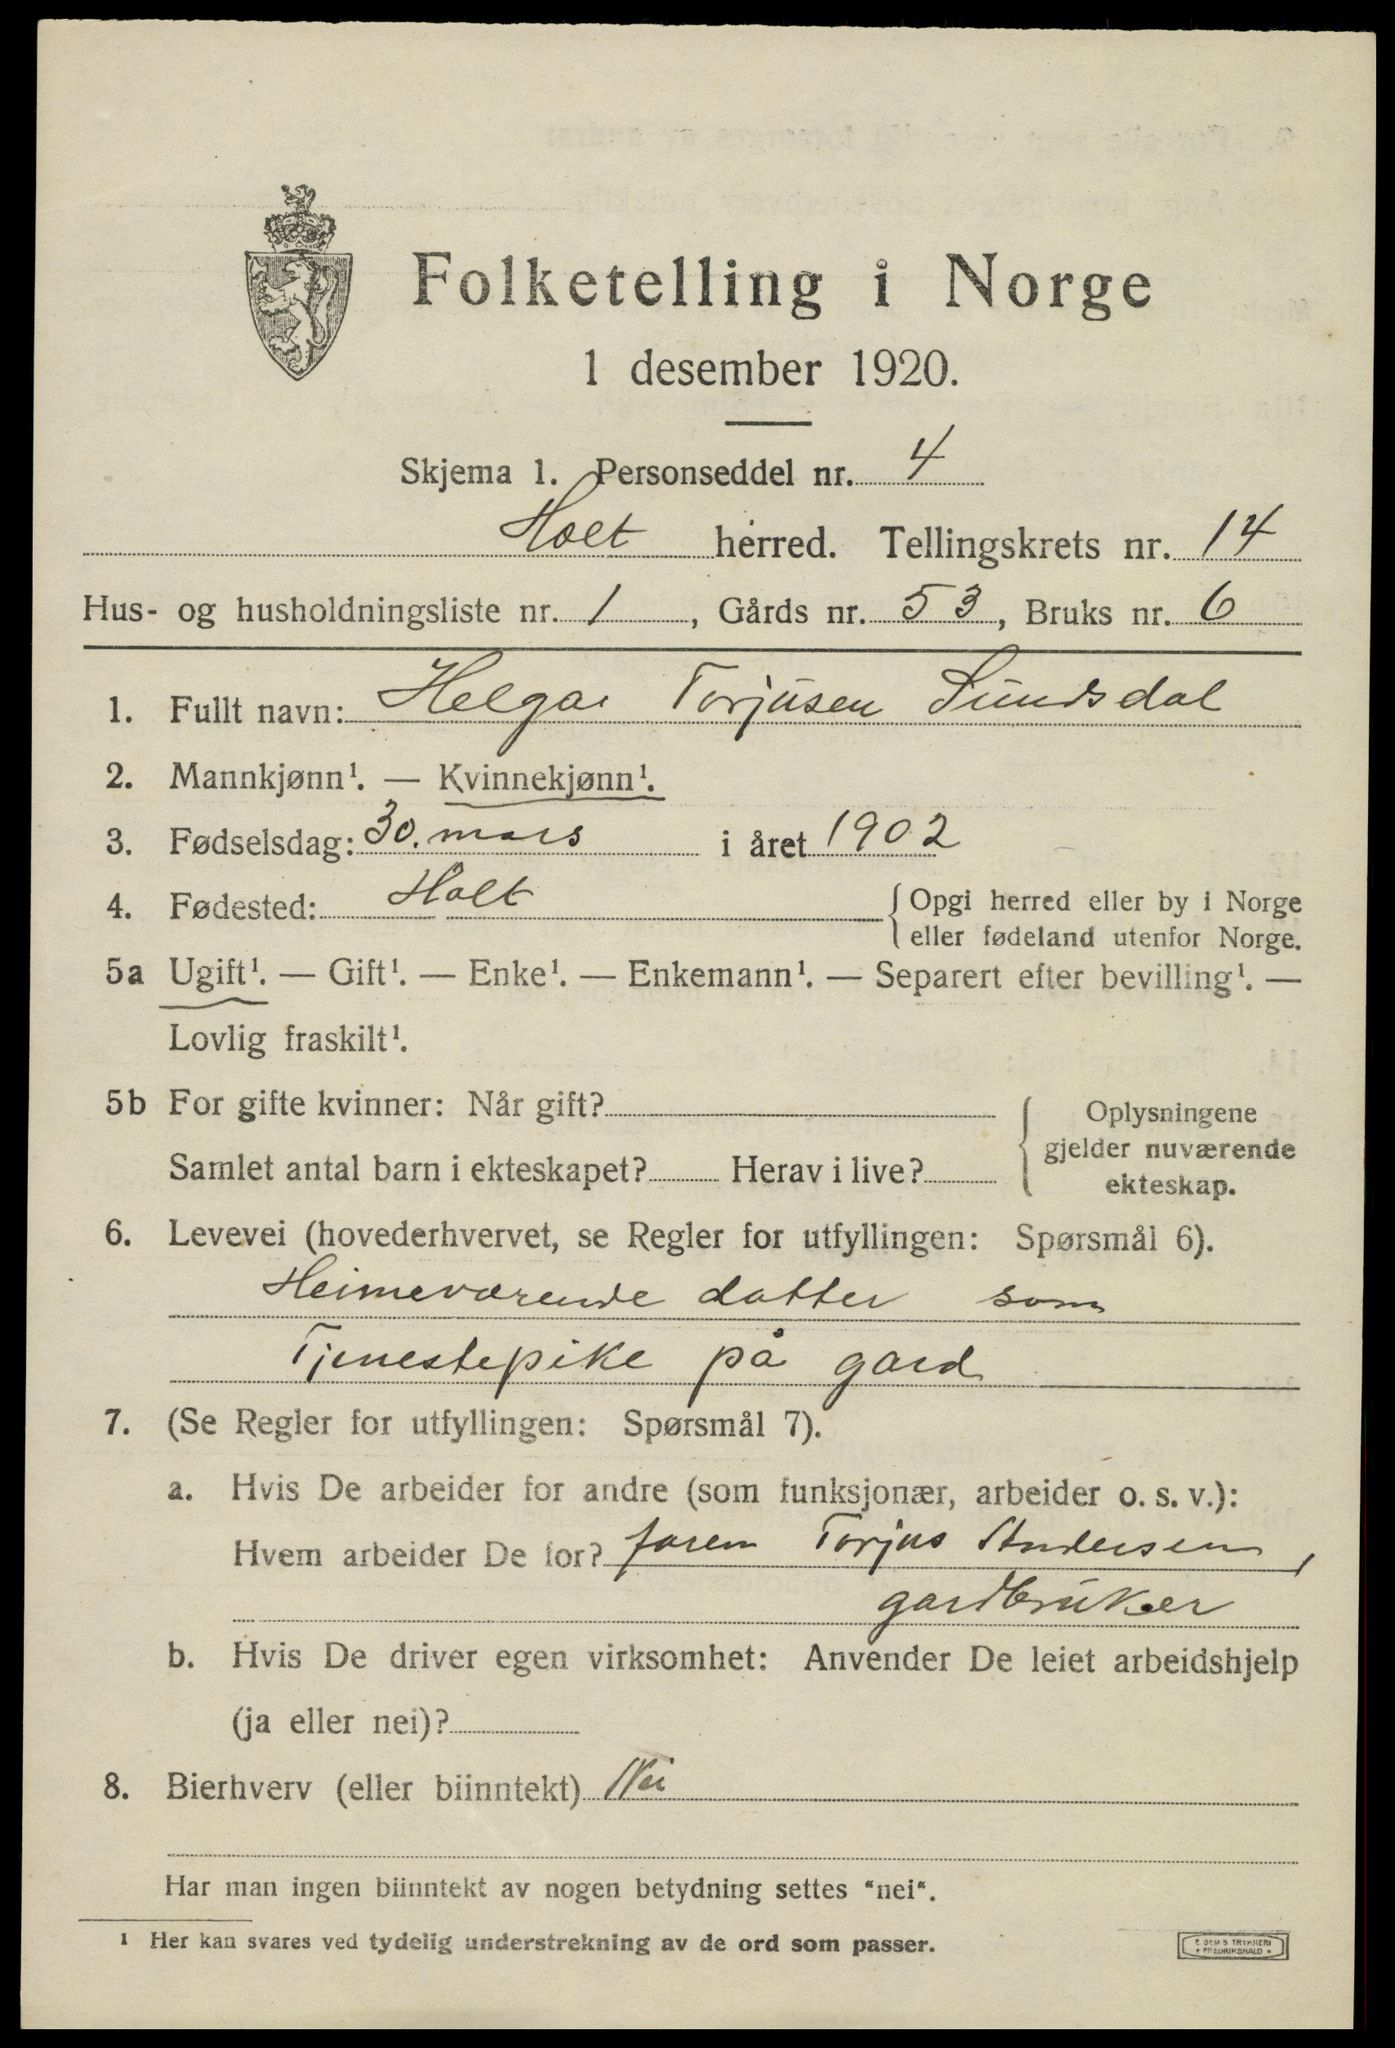 Folketelling i Norge
1 desember 1920.
Skjema 1. Personseddel nr. 4
Holt herred. Tellingskrets nr. 14
Hus- og husholdningsliste nr. 1, Gårds nr. 53, Bruks nr. 6
1. Fullt navn: Helga Torjusen Sundsdal
2. Mannkjønn¹. — Kvinnekjønn¹.
3. Fødselsdag: 30. mars i året 1902
4. Fødested: Holt {Opgi herred eller by i Norge
eller fødeland utenfor Norge.
5a Ugift¹. — Gift¹. — Enke¹. — Enkemann¹. — Separert efter bevilling¹. —
Lovlig fraskilt¹.
5b For gifte kvinner: Når gift? { Oplysningene
gjelder nuværende
Samlet antal barn i ekteskapet? Herav i live? ekteskap.
6. Levevei (hovederhvervet, se Regler for utfyllingen: Spørsmål 6).
Heimeværende datter som
Tjenestepike på gard
7. (Se Regler for utfyllingen: Spørsmål 7).
a. Hvis De arbeider for andre (som funksjonær, arbeider o. s. v.):
Hvem arbeider De for? faren Torjus Andersen,
gardbruker
b. Hvis De driver egen virksomhet: Anvender De leiet arbeidshjelp
(ja eller nei)?
8. Bierhverv (eller biinntekt) Nei
Har man ingen biinntekt av nogen betydning settes "nei".
¹ Her kan svares ved tydelig understrekning av de ord som passer.
E. SEM'S TRYKKERI
• FREDRIKSHALD •